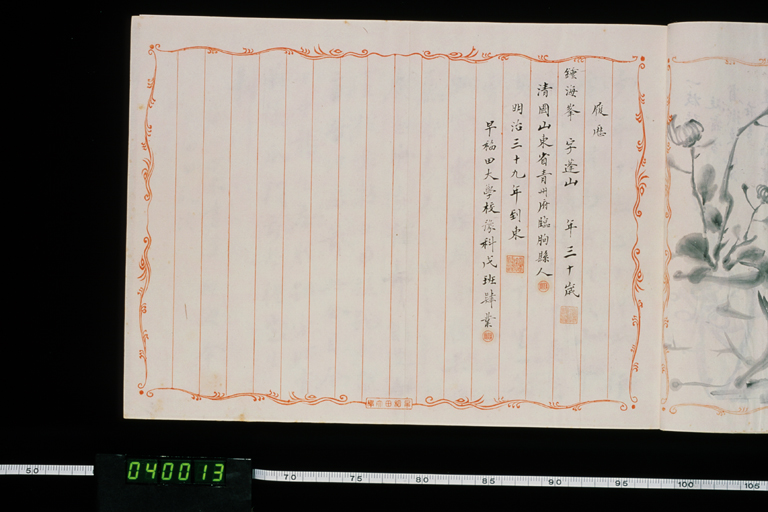 履歴
鍾海峯 字蓬山 年三十歳
清國山東省青州府臨朐縣人
明治三十九年到東
早稲田大學校豫科戊班肄業
040013
50
70
75
80
85
90
95
100
105